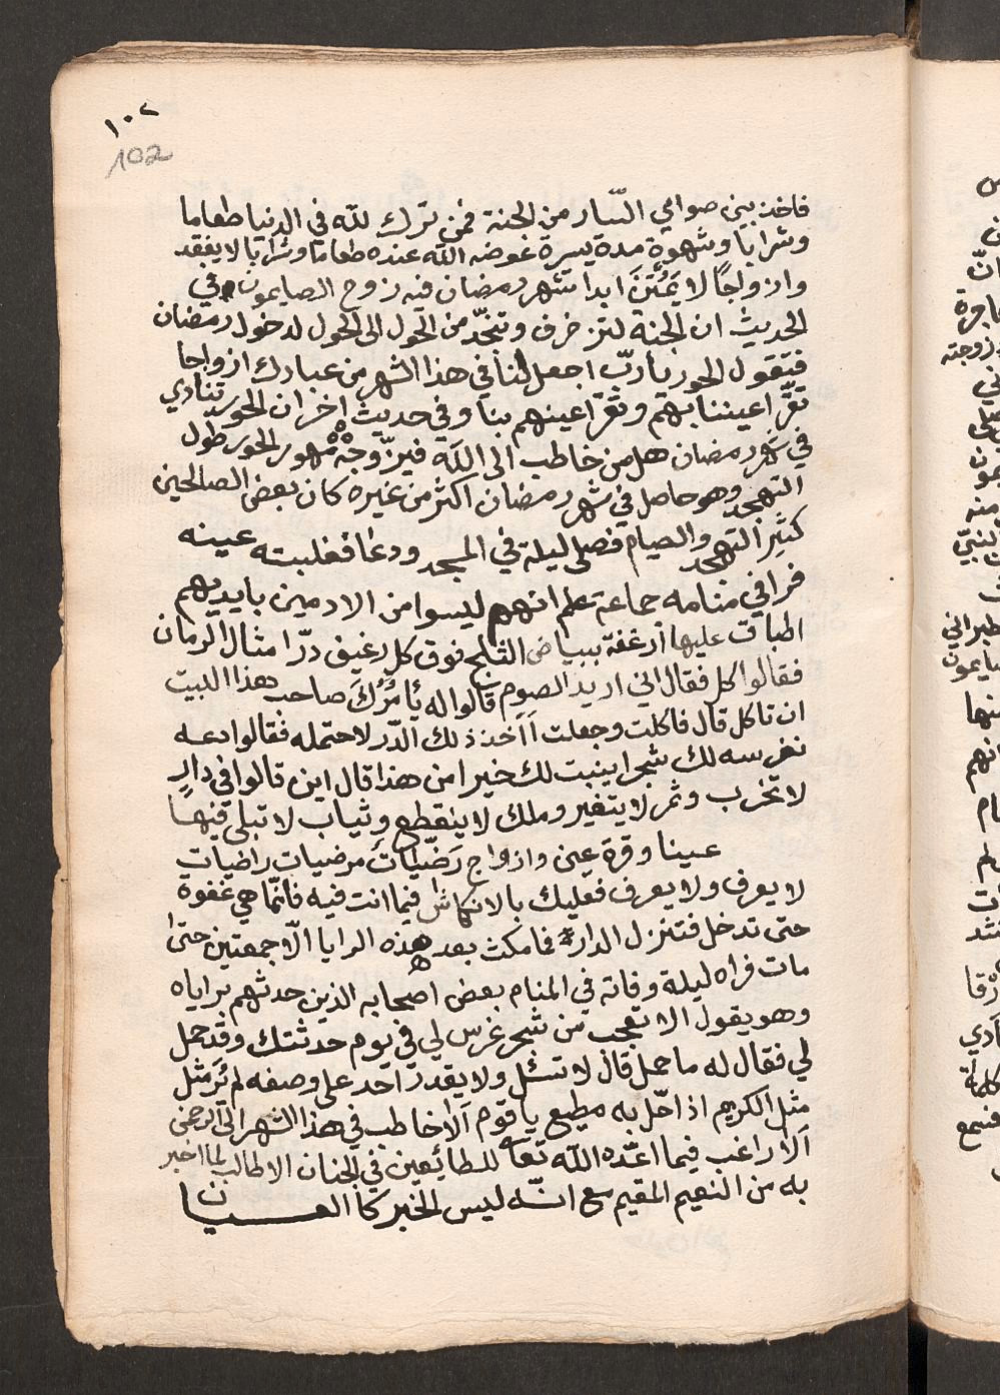 ١٠٢
102
فاخذ بيني صوامي السّار من الجنة فمن ترك لله في الدنيا طعاما
وشرابا وشهوة مدة يسيرة عوضه الله عنده طعاما وشرابا لا يفقد
وازواجًا لا يَمُتْنَ ابدا شهر رمضان فيه زوج الصايمون وفي
الحديث ان الجنة لتزخرف وتنخّد من الحول الى الحول لدخول رمضان
فتقول الحور يا ربّ اجعل لنا في هذا الشهر من عبادك ازواجا
تقرّ اعيننا بهم وتقرّ اعينهم بنا وفي حديث اخر ان الحور تنادي
في شهر رمضان هل من خاطب الى الله فيزّوجه مهور الحور طول
التهجد وهو حاصل في شهر رمضان اكثر من غيره كان بعض الصالحين
كثير التهجد والصيام فصلى ليلة في المسجد ودعا فغلبته عينه
فرا في منامه جماعة علم انهم ليسوا من الادمين بايديهم
اطباق عليها أرغفة ببياض الثلج فوق كل رغيف درّ امثال الرمان
فقالوا كل فقال اني اريد الصوم قالوا له يأمُرُكَ صاحب هذا البيت
ان تاكل قال فاكلت وجعلت آاخذ ذلك الدّر لاحتمله فقالوا دعه
نغرسه لك شجرا ينبت لك خيرا من هذا قال اين قالوا في دارٍ
لا تخرب وثمر لا يتغير وملك لا ينقطع وثياب لا تبلى فيها
عينا وقرة عين وازواج رَضّياتٌ مرضيات راضيات
لا يعرف ولا يعرف فعليك بالانكماش فيما انت فيه فانّما هي غفوة
حتى تدخل فتنزل الدار فما مكث بعد هذه الرايا الّا جمعتين حتى
مات فراه ليلة وفاته في المنام بعض اصحابه الذين حدثهم براياه
وهو يقول الا تعجب من شجر غرس لي في يوم حدثتك وقد حمل
لي فقال له ما حمل قال لا تسئل ولا يقدر احد على وصفه لم يُرَ مثل
مثل الكريم اذا حلّ به مطيع يا قوم اَلا خاطب في هذا الشهر الى الرحمن
اَلا راغب فيما اعدّه الله تعا للطايعين في الجنان الا طالب لما اخبر
به من النعيم المقيم مع انّه ليس الخبر كا العيان